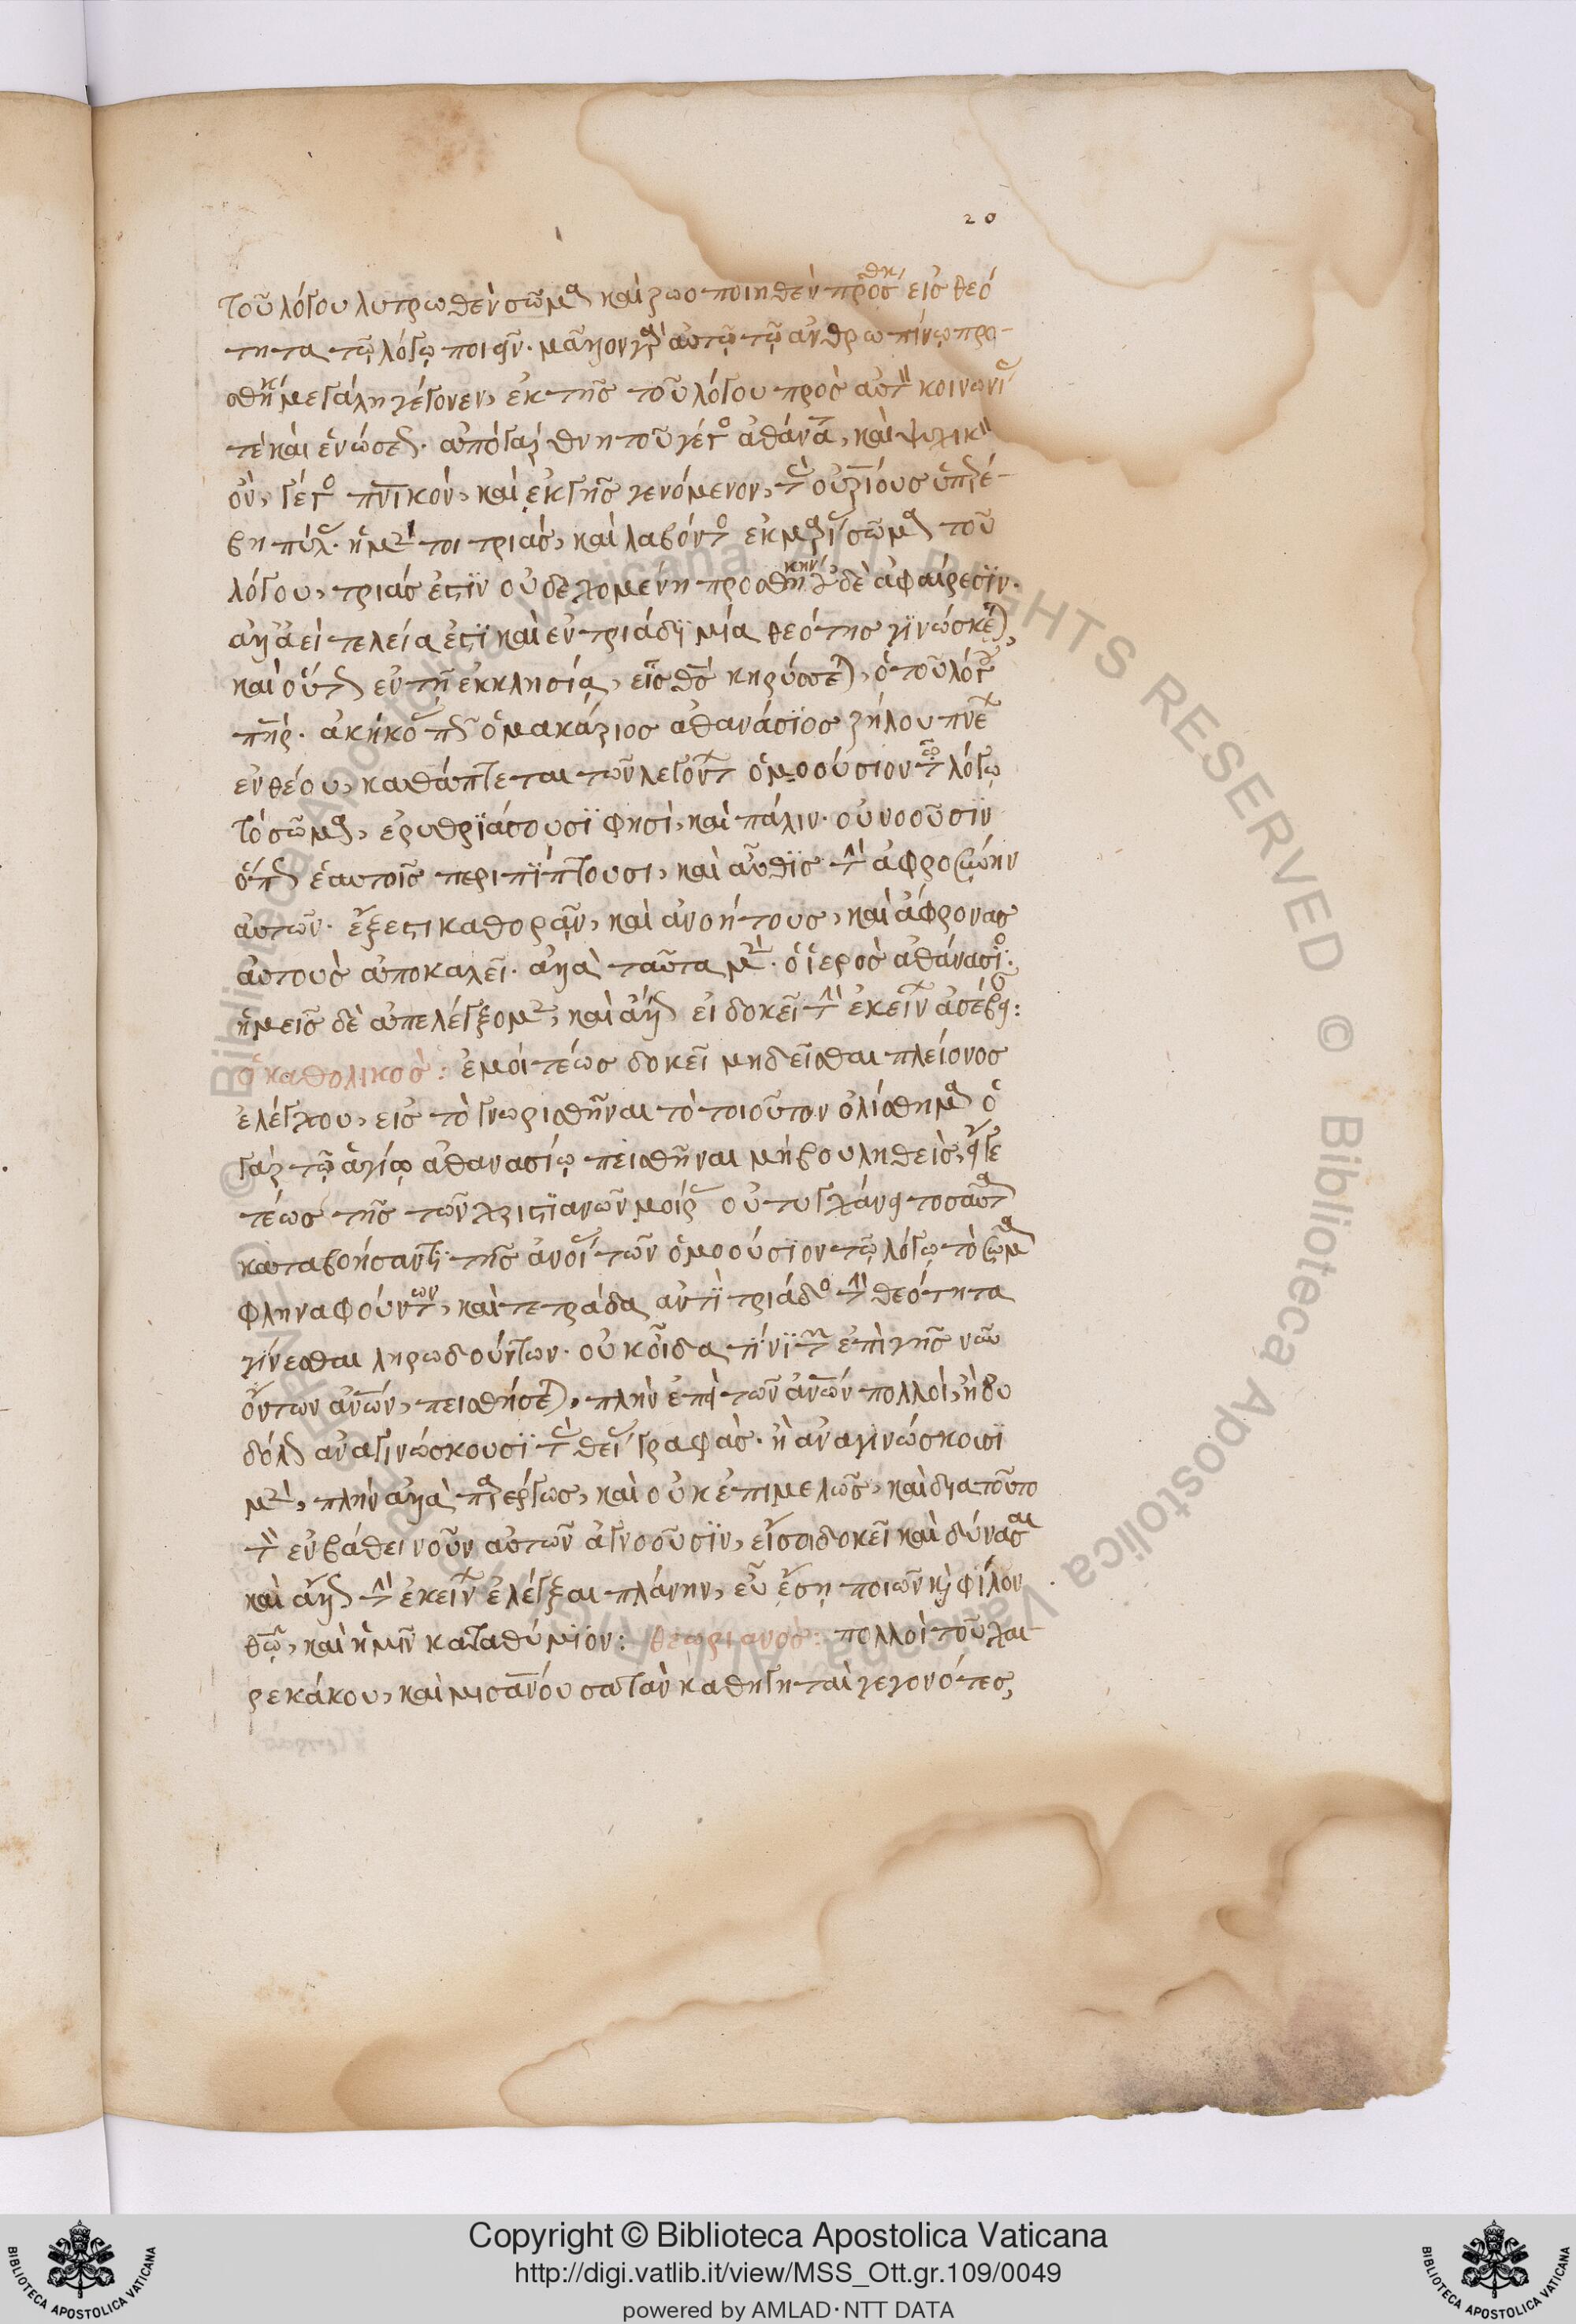 20
τοῦ λόγου λυτρωθὲν σῶμα καὶ ζωοποιηθὲν προσθήκην εἰς θεό
τητα τῷ λόγῳ ποιεῖν. μᾶλλον γὰρ αὐτῷ τῷ ἀνθρωπίνῳ προ-
σθήκη μεγάλη γέγονεν, ἐκ τῆς τοῦ λόγου πρὸς αὐτὸ κοινωνίας
τὲ καὶ ἑνώσεως. ἀπὸ γὰρ θνητοῦ γέγονεν ἀθάνατον, καὶ ψυχικὸν
ὂν, γέγονε πνικόν, καὶ ἐκ γῆς γενόμενον, τὰς οὐρανίους ὑπερέ-
βη πύλας. ἡ μέντοι τριάς, καὶ λαβόντος ἐκ μαρίας σῶμα τοῦ
λόγου, τριάς ἐστϊν οὐ δεχομένη προσθήκην οὐδὲ ἀφαίρεσϊν.
ἀλλ' ἀεὶ τελεία ἐστϊ καὶ ἐν τριάδϊ μία θεότης γϊνώσκεται,
καὶ οὕτως ἐν τῇ ἐκκλησίᾳ, εἷς θς κηρύσσεται, ὁ τοῦ λόγου
πηρ. ἀκήκοας πῶς ὁ μακάριος ἀθανάσϊος ζήλου πνέων
ἐνθέου, καθάπτεται τῶν λεγόντων ὁμοούσιον τῷ λόγῳ
τὸ σῶμα, ἐρυθρϊάσουσϊ φησὶ, καὶ πάλιν. οὐ νοοῦσϊν
ὅπως ἑαυτοῖς περιπϊπτουσι, καὶ αὖθϊς τὴν ἀφροσύνην
αὐτῶν. ἔξεστι καθορᾶν, καὶ ἀνοήτους, καὶ ἄφρονας
αὐτοὺς ἀποκαλεῖ. ἀλλὰ ταῦτα μὲν. ὁ ἱερὸς ἀθανάσϊος.
ἡμεῖς δὲ ἀπελέγξομεν, καὶ ἄλλως εἰ δοκεῖ τὴν ἐκείνων ἀσέβειαν:
ὁ καθολικὸς: ἐμοὶ τέως δοκεῖ μὴ δεῖσθαι πλείονος
ἐλέγχου, εἰς τὸ γνωρισθῆναι τὸ τοιοῦτον ὀλίσθημα ὁ
γὰρ τῷ ἁγίῳ ἀθανασίῳ πεισθῆναι μὴ βουληθεὶς, εἴγε
τέως τῆς τῶν χριστϊανῶν μοίρας οὐ τυγχάνει τοσαῦτα
καταβοήσαντϊ τῆς ἀνοίας τῶν ὁμοούσϊον τῷ λόγῳ τὸ σῶμα
φληναφούντων, καὶ τετράδα ἀντϊ τριάδος τὴν θεότητα
γίνεσθαι ληρωδούντων. οὐκ οἶδα τϊνϊ τῶν ἐπὶ γῆς νῦν
ὄντων ἀνῶν, πεισθήσεται, πλὴν ἐπεὶ τῶν ἀνῶν πολλοὶ, ἢ οὐ
δόλως ἀναγινώσκουσϊ τὰς θείας γραφὰς. ἢ ἀναγϊνώσκουσϊ
μὲν, πλὴν ἀλλὰ παρέργως, καὶ οὐκ ἐπιμελῶς, καὶ διατοῦτο
τὸν ἐν βάθει νοῦν αὐτῶν ἀγνοοῦσϊν, εἴ σοι δοκεῖ καὶ δύνασαι
καὶ ἄλλως τὴν ἐκείνων ἐλέγξαι πλάνην, εὖ ἔσῃ ποιῶν καὶ φίλον
θῷ, καὶ ἡμῖν καταθύμϊον: θεωριανὸς: πολλοὶ τοῦ χαι-
ρεκάκου, καὶ μισανου σατὰν καθηγηταὶ γεγονότες,
Copyright © Biblioteca Apostolica Vaticana
http://digi.vatlib.it/view/MSS_Ott.gr.109/0049
powered by AMLAD·NTT DATA